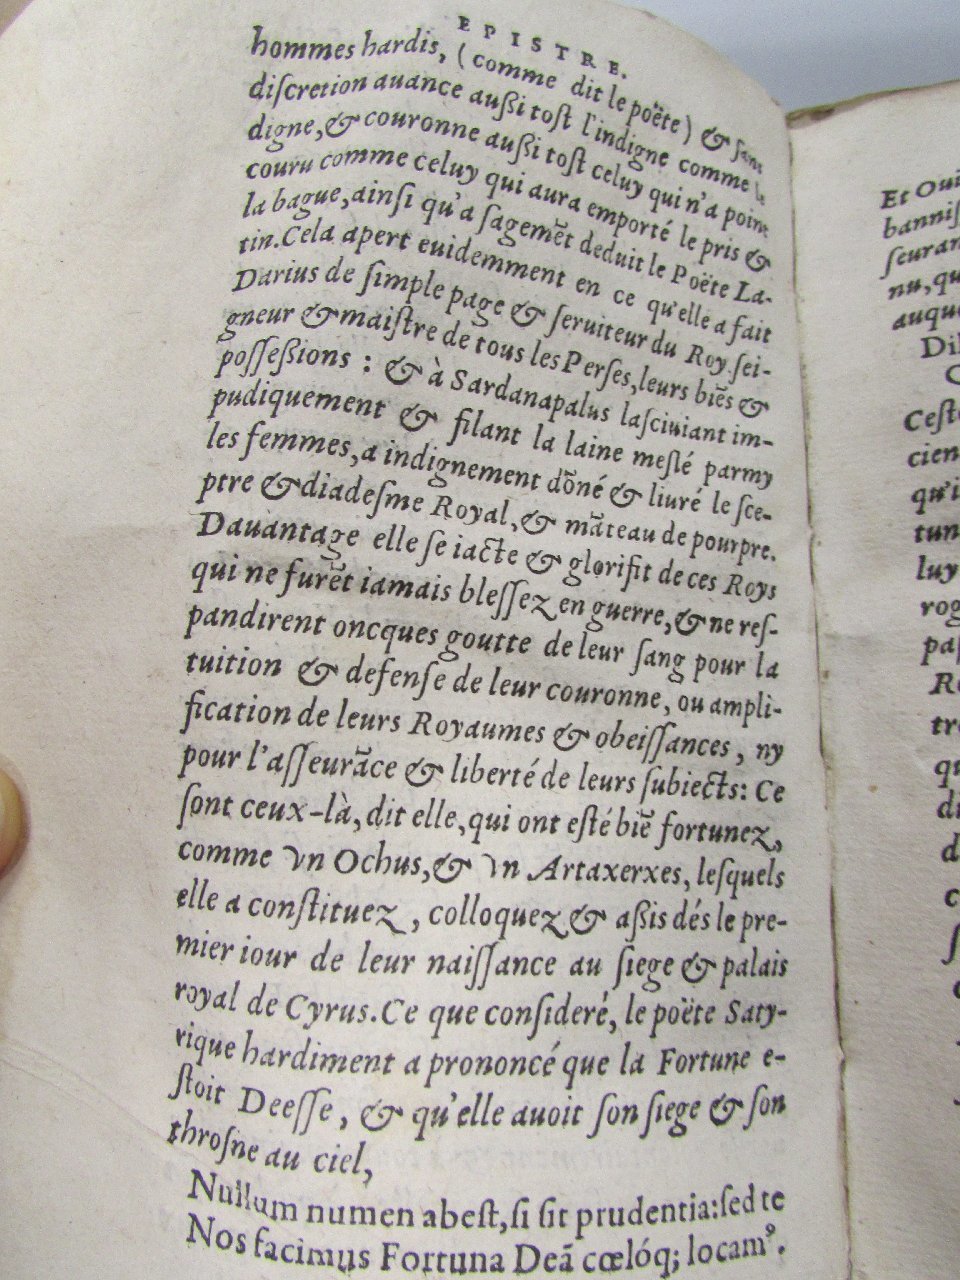 EPISTRE.
hommes hardis, (comme dit le poëte) & ſans
diſcretion auance auſſi toſt l'indigne comme le
digne, & couronne auſſi toſt celuy qui n'a point
couru comme celuy qui aura emporté le pris &
la bague, ainſi qu'a ſagemẽt deduit le Poëte La-
tin. Cela apert euidemment en ce qu'elle a fait
Darius de ſimple page & ſeruiteur du Roy ſei-
gneur & maiſtre de tous les Perſes, leurs biẽs &
poſſeſſions : & à Sardanapalus laſciuiant im-
pudiquement & filant la laine meſlé parmy
les femmes, a indignement dõné & liuré le ſce-
ptre & diadeſme Royal, & mãteau de pourpre.
Dauantage elle ſe iacte & glorifit de ces Roys
qui ne furẽt iamais bleſſez en guerre, & ne reſ-
pandirent oncques goutte de leur ſang pour la
tuition & defenſe de leur couronne, ou ampli-
fication de leurs Royaumes & obeiſſances, ny
pour l'aſſeurãce & liberté de leurs ſubiects: Ce
ſont ceux-là, dit elle, qui ont eſté biẽ fortunez,
comme vn Ochus, & vn Artaxerxes, leſquels
elle a conſtituez, colloquez & aſſis dés le pre-
mier iour de leur naiſſance au ſiege & palais
royal de Cyrus. Ce que conſideré, le poëte Saty-
rique hardiment a prononcé que la Fortune e-
ſtoit Deeſſe, & qu'elle auoit ſon ſiege & ſon
throſne au ciel,
Nullum numen abeſt, ſi ſit prudentia: ſed te
Nos facimus Fortuna Deã cœlóq; locamꝰ.
Et Oui
banniſ
ſeuran
nu, qu
auque
Dil
Ceſt
cien
qu'i
tun
luy
rog
paſ
R
tr
q
di
d
c